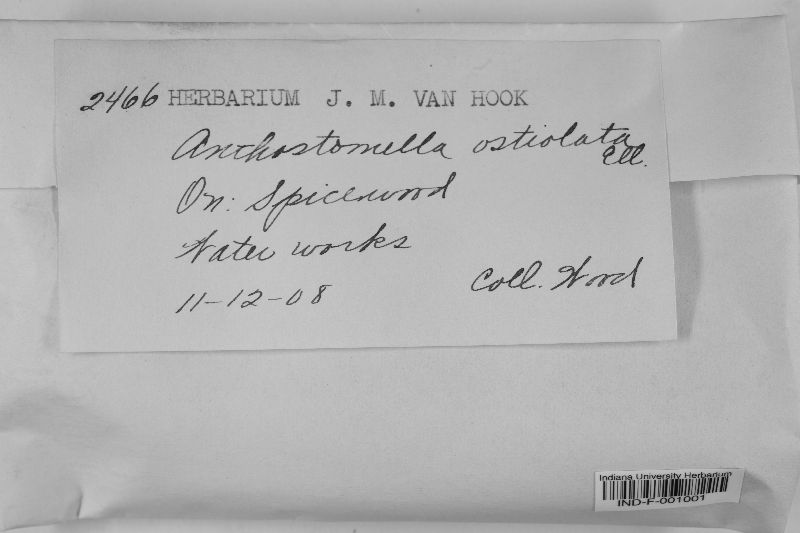 2466 HERBARIUM J. M. VAN HOOK
Anthostomella ostiolata
Ell.
On: Spicewood
Water works
11-12-08 Coll. Wood
Indiana University Herbarium
IND-F-001001